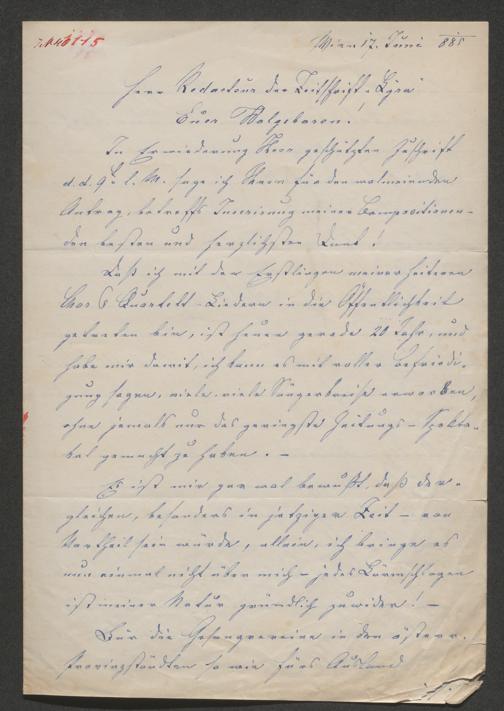 Wien 17. Juni 885
Herr Redacteur der Zeitschrift „Lyra“
Euer Wolgeboren!
In Erwiederung Ihrer geschätzten Zuschrift
d. d. 9t l. M. sage ich Ihnen für den wolmeinenden
Antrag, betreffs Inserirung meiner Compositionen –
den besten und herzlichsten Dank!
Daß ich mit den Erstlingen meiner heiteren
Chor & Quartett-Liedern in die Öffentlichkeit
getreten bin, ist heuer gerade 20 Jahr, und
habe mir damit, ich kann es mit voller Befriedi-
gung sagen, viele, viele Sängerkreise erworben,
ohne jemals nur das geringste Zeitungs-Spekta-
kel gemacht zu haben. –
Es ist mir gar wol bewußt, daß der-
gleichen, besonders in jetziger Zeit – von
Vortheil sein würde, allein, ich bringe es
nun einmal nicht über mich – jedes Lärmschlagen
ist meiner Natur gründlich zuwider! –
Für die Gesangvereine in den österr.
Provinzstädten so wie fürs Ausland